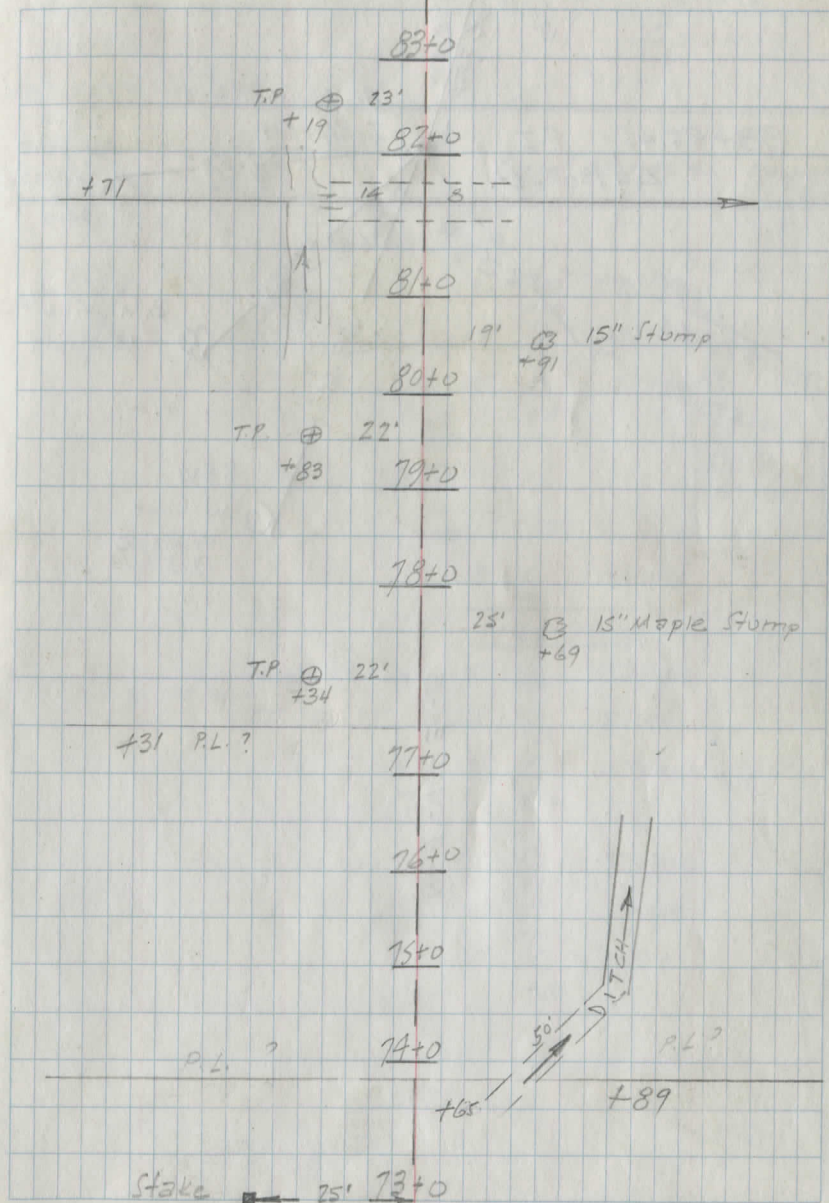 83+0
T.P. 23'
+19
82+0
+71 14 8
81+0
19' 15" Stump
+91
80+0
T.P. 22'
+83
79+0
78+0
25' 15" Maple Stump
+69
T.P. 22'
+34
+31 P.L.?
77+0
76+0
75+0
DITCH
74+0
P.L. ? P.L?
+65 +89
Stake 25' 73+0